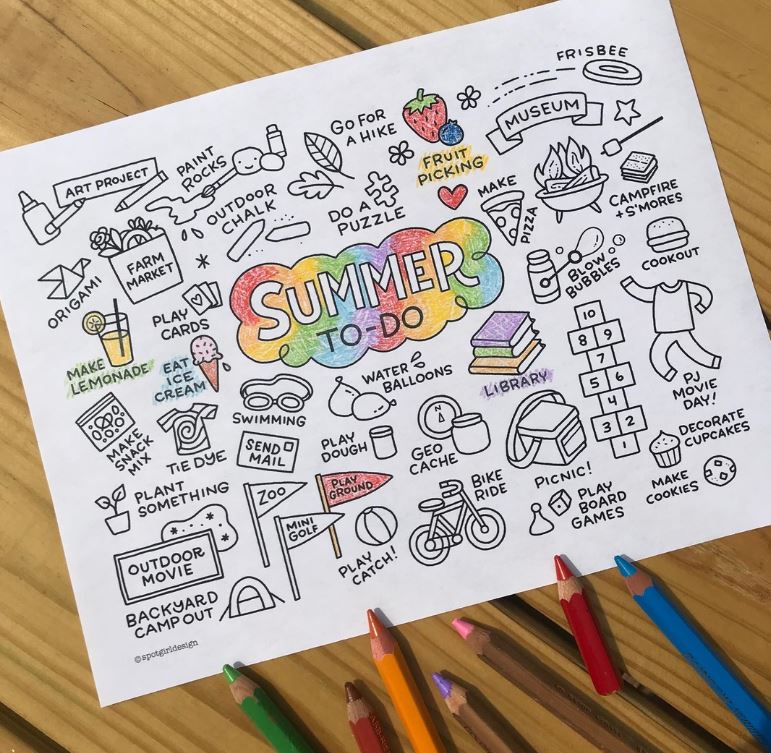 FRISBEE
MUSEUM
GO FOR
A HIKE
FRUIT
PICKING
ART PROJECT
PAINT
ROCKS
OUTDOOR
CHALK
DO A
PUZZLE
MAKE
PIZZA
CAMPFIRE
+ S'MORES
FARM
MARKET
ORIGAMI
PLAY
CARDS
SUMMER
TO-DO
BLOW
BUBBLES
COOKOUT
MAKE
LEMONADE
EAT
ICE
CREAM
SWIMMING
WATER
BALLOONS
LIBRARY
10
8 9
7
5 6
4
3 2
1
PJ
MOVIE
DAY!
MAKE
SNACK
MIX
TIE DYE
SEND
MAIL
PLAY
DOUGH
N
GEO
CACHE
PICNIC!
DECORATE
CUPCAKES
MAKE
COOKIES
PLANT
SOMETHING
ZOO
MINI
GOLF
PLAY
GROUND
PLAY
CATCH!
BIKE
RIDE
PLAY
BOARD
GAMES
OUTDOOR
MOVIE
BACKYARD
CAMPOUT
©spotgirldesign